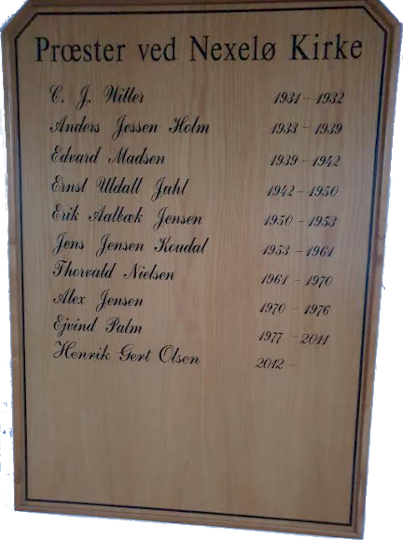 Præster ved Nexelø Kirke
C. J. Willer 1931 - 1932
Anders Jessen Holm 1933 - 1939
Edvard Madsen 1939 - 1942
Ernst Uldall Juhl 1942 - 1950
Erik Aalbæk Jensen 1950 - 1953
Jens Jensen Koudal 1953 - 1961
Thorvald Nielsen 1961 - 1970
Alex Jensen 1970 - 1976
Ejvind Palm 1977 - 2011
Henrik Gert Olsen 2012 -